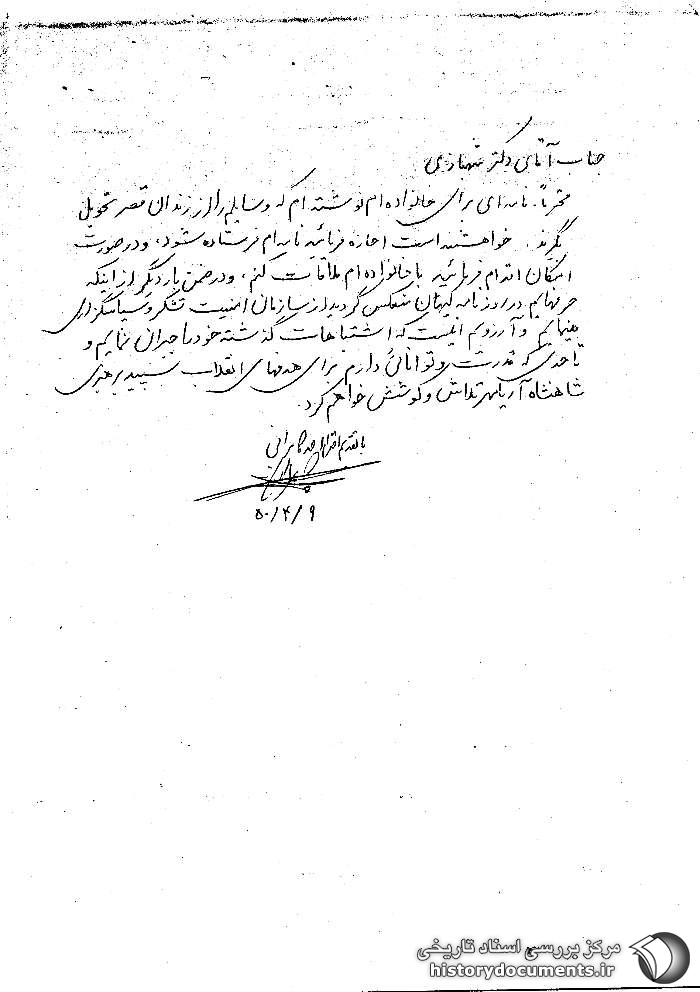 جناب آقای دکتر
محترماً، نامه‌ای برای خانواده‌ام نوشته‌ام که وسایلم را از زندان قصر تحویل
بگیرند. خواهشمند است اجازه فرمائید نامه‌ام فرستاده شود، و در صورت
امکان اقدام فرمائید با خانواده‌ام ملاقات کنم، و در ضمن بار دیگر از اینکه
حرفهایم در روزنامه کیهان منعکس گردید از سازمان امنیت تشکر و سپاسگزاری
مینمایم و آرزویم اینست که اشتباهات گذشته خود را جبران نمایم و
تا حدی که قدرت و توانائی دارم برای هدفهای انقلاب سپید برهبری
شاهنشاه آریامهر تلاش و کوشش خواهم کرد.
با تقدیم احترام
۵۰/۴/۹
مرکز بررسی اسناد تاریخی
historydocuments.ir